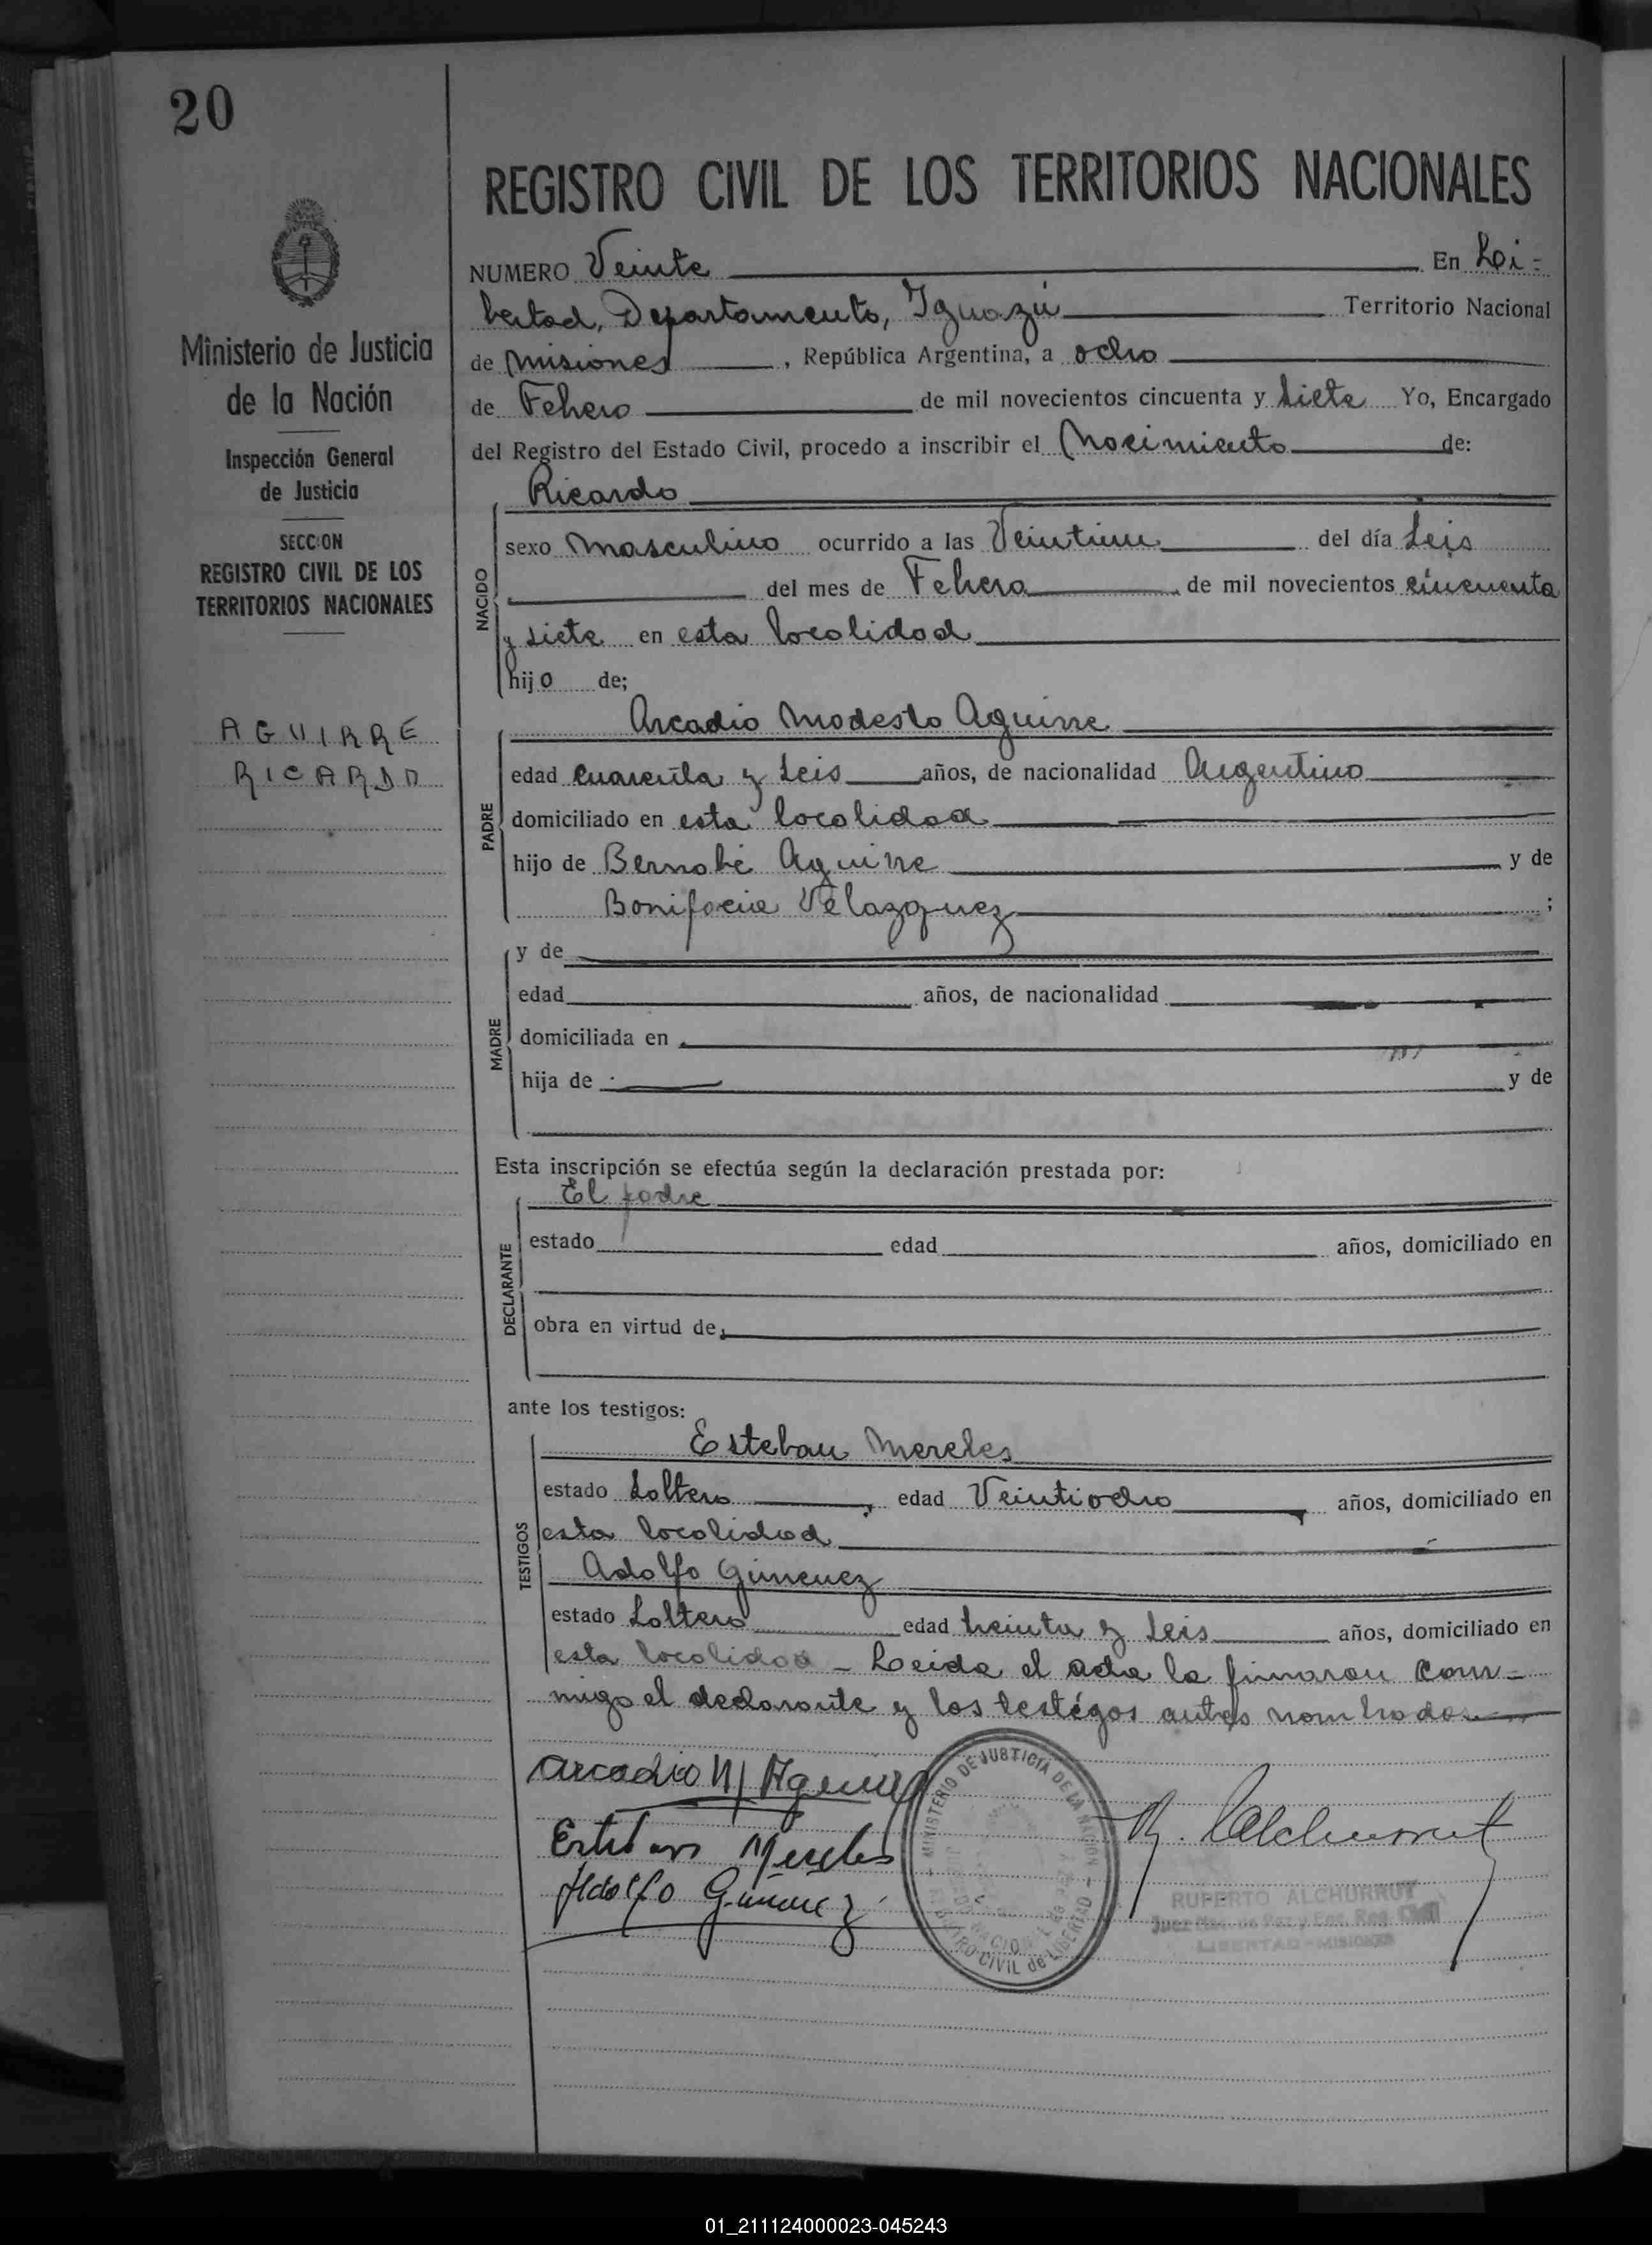 20
REGISTRO CIVIL DE LOS TERRITORIOS NACIONALES
Ministerio de Justicia
de la Nación
Inspección General
de Justicia
SECCION
REGISTRO CIVIL DE LOS
TERRITORIOS NACIONALES
AGUIRRE
RICARDO
NUMERO Veinte En Li-
bertad, Departamento, Iguazú Territorio Nacional
de Misiones, República Argentina, a ocho
de Febrero de mil novecientos cincuenta y siete Yo, Encargado
del Registro del Estado Civil, procedo a inscribir el Nacimiento de:
NACIDO
Ricardo
sexo masculino ocurrido a las Veintiun del día seis
del mes de Febrero, de mil novecientos cincuenta
y siete en esta localidad
hijo de;
PADRE
Arcadio Modesto Aguirre
edad cuarenta y seis años, de nacionalidad Argentino
domiciliado en esta localidad
hijo de Bernabé Aguirre y de
Bonifacia Velazquez;
MADRE
y de
edad años, de nacionalidad
domiciliada en
hija de y de
Esta inscripción se efectúa según la declaración prestada por:
DECLARANTE
El padre
estado edad años, domiciliado en
obra en virtud de
ante los testigos:
TESTIGOS
Esteban Mereles
estado soltero, edad Veintiocho años, domiciliado en
esta localidad
Adolfo Gimenez
estado soltero edad treinta y seis años, domiciliado en
esta localidad - Leida el acta la firmaron con-
migo el declarante y los testigos antes nombrados.
Arcadio M Aguirre
Esteban Mereles
Adolfo Gimenez
MINISTERIO DE JUSTICIA DE LA NACION
REGISTRO CIVIL de LIBERTAD
R. Alchurrut
RUPERTO ALCHURRUT
Juez Nac. de Paz y Enc. Reg. Civil
LIBERTAD - MISIONES
01_211124000023-045243